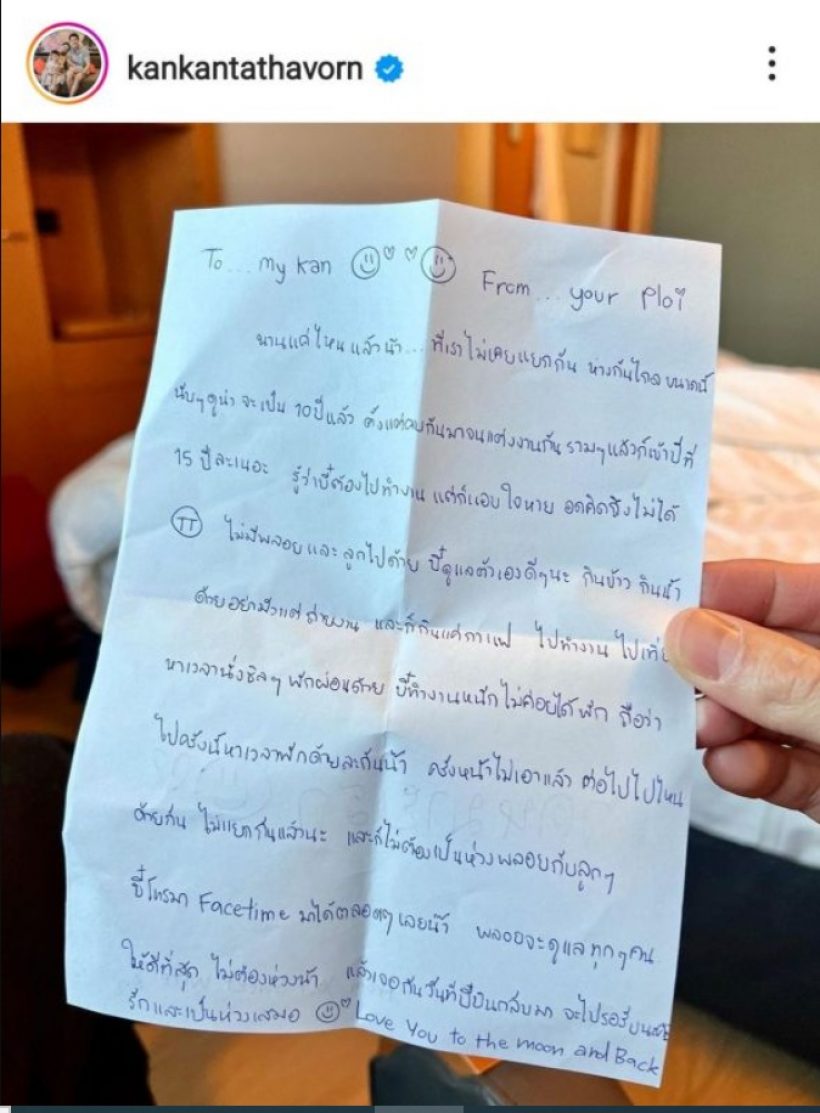 kankantathavorn
To... my kan From... your Ploi
นานแค่ไหนแล้วน้า... ที่เราไม่เคยแยกกัน ห่างกันไกล ขนาดนี้
นับๆดูน่า จะเป็น 10 ปีแล้ว ตั้งแต่คบกันมาจนแต่งงานกัน รวมๆแล้วก็เข้าปีที่
15 ปีละเนอะ รู้ว่าบี๋ต้องไปทำงาน แต่ก็แอบ ใจหาย อดคิดถึงไม่ได้
TT ไม่มีพลอยและ ลูกไปด้วย บี๋ดูแลตัวเองดีๆนะ กินข้าว กินน้ำ
ด้วยอย่ามัวแต่ ถ่ายงาน และก็กินแค่กาแฟ ไปทำงาน
หาเวลานั่งชิลๆ พักผ่อนด้วย บี๋ทำงานหนัก ไม่ค่อยได้พัก ถือว่า
ไปครั้งนี้หาเวลาพักด้วยละกันน้า ครั้งหน้าไม่เอาแล้ว ต่อไปไปไหน
ด้วยกัน ไม่แยกกันแล้วนะ และก็ไม่ต้องเป็นห่วงพลอยกับลูกๆ
บี๋โทรมา Facetime มาได้ตลอดๆเลยน้า พลอยจะดูแลทุกๆคน
ให้ดีที่สุด ไม่ต้องห่วงน้า แล้วเจอกันวันที่บี๋บินกลับมา จะไปรอรับ
รักและเป็นห่วงเสมอ Love You to the moon and Back